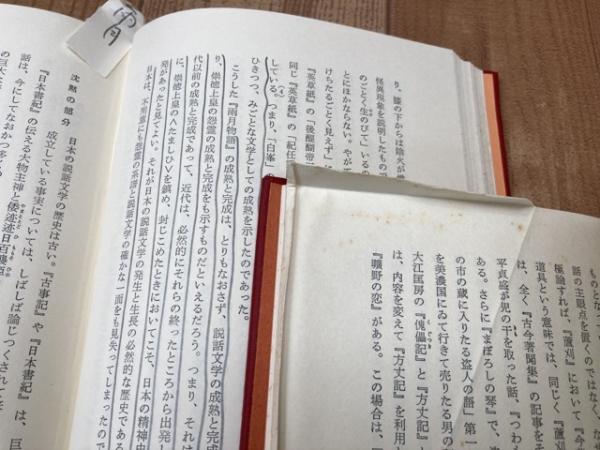 雨月
り、膝の下からは陰火が
怪異現象を説明したもの
のごとく生のびて」いるの
とにほかならない。やが
けちたるごとく見えず」
『英草紙』の「後醍醐帝
同じ『英草紙』の「紀任
している。(4)つまり、「白峯」
ひきつつ、みごとな文学としての成熟を示したのであった。
こうした『雨月物語』の成熟と完成は、とりもなおさず、説話文学の成熟と完
代以前の成熟と完成であって、近代は、必然的にそれらの終ったところから出発し
に、崇徳上皇の怨霊の成熟と完成をも示すものだといえるだろう。つまり、それは
発があったと見てよい。それが日本の説話文学の発生と生長の必然的な歴史である
に、崇徳上皇の∧たましひ∨を鎮め、封じこめたときにおいてこそ、日本の精神史
日本は、不用意にも怨霊の系譜と説話文学の確かな一面をも見失ってしまったので
沈黙の部分
日本の説話文学の歴史は古い。『古事記』や『日本書紀』は、巨
成立している事実については、しばしば論じつくされてき
『日本書紀』の伝える大物主神と倭迹迹日百襲姫
話は、今にしてなおかつ多く
の巨大な
とのつながりを
話の主眼点を置くのではなく、な
極論すれば、『蘆刈』において「今
道具という意味では、同じく『蘆刈
は、全く『古今著聞集』の記事をそ
平貞盛が児の干を取った話、『つわ
ある。さらに『まぼろしの琴』で、
の市の蔵に入りたる盗人の語」第一
を美濃国にゐて行きて売りたる男の
大江匡房の『傀儡記』と『方丈記』
は、内容を変えて『方丈記』を利用
『曠野の恋』がある。この場合は、